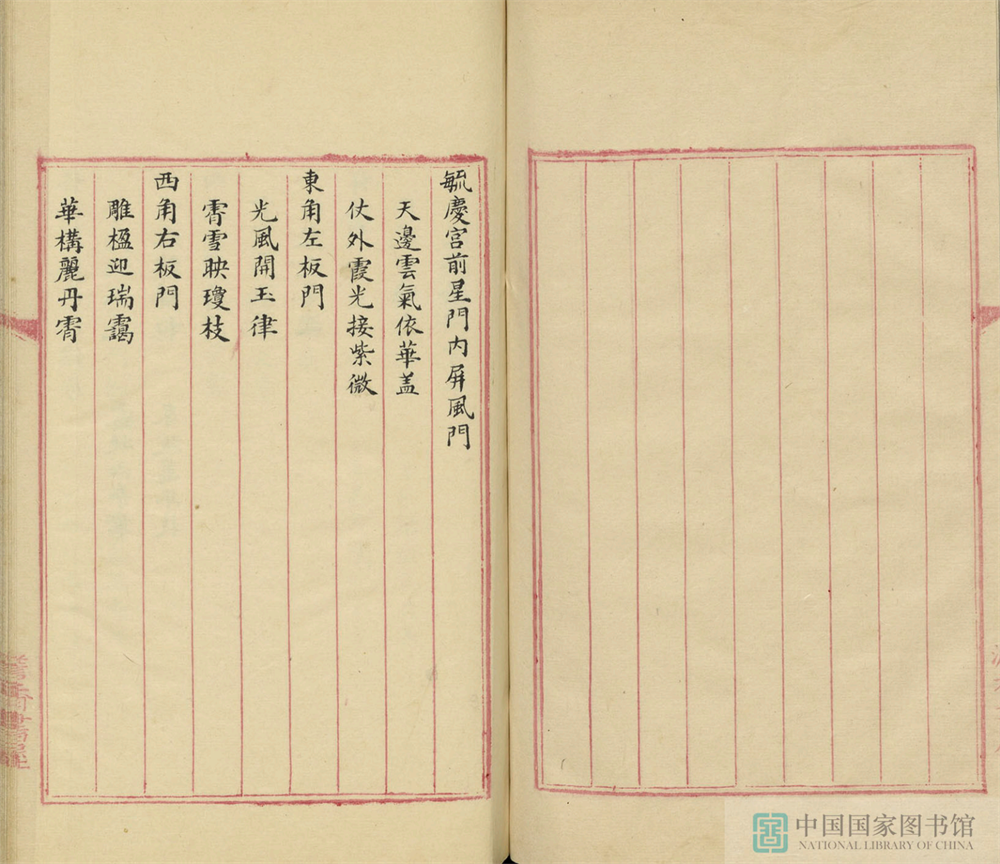 毓慶宮前星門内屏風門
天邊雲氣依華盖
仗外霞光接紫微
東角左板門
光風開玉律
霱雪映瓊枝
西角右板門
雕楹迎瑞靄
華構麗丹霄
中国国家图书馆
NATIONAL LIBRARY OF CHINA